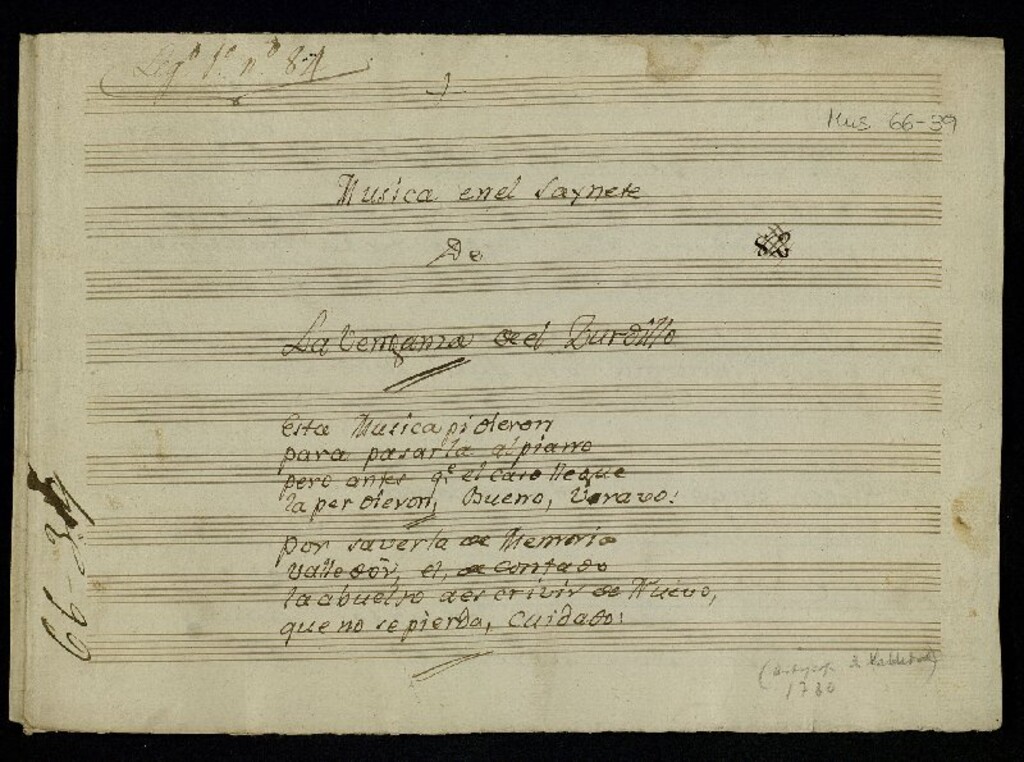 Leg.º 1.º n.º 84
Mus 66-39
Musica enel Saynete
De
82
La Venganza de el Zurdillo
Esta Musica pidieron
para pasarla al piano
pero antes q.e el caso llegue
la perdieron, Bueno, Vravo!
por saverla de Memoria
Valledor, el, de contado
la abuelto aescrivir de Nuevo,
que no se pierda, Cuidado!
66-39
1780